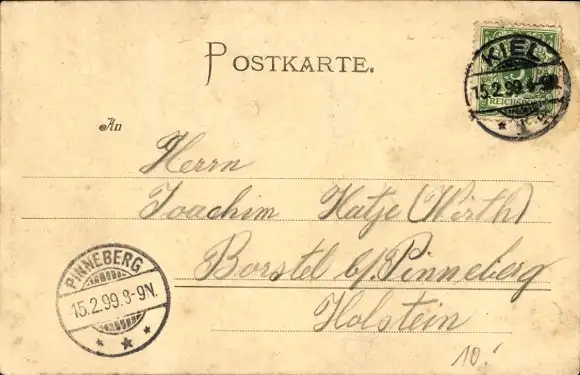 POSTKARTE.
KIEL
15.2.99. 4-5N.
5
REICHSPOST
An
Herrn
Joachim Hatje (Wirth)
Borstel b/Pinneberg
Holstein
PINNEBERG
15.2.99.8-9N.
10.!